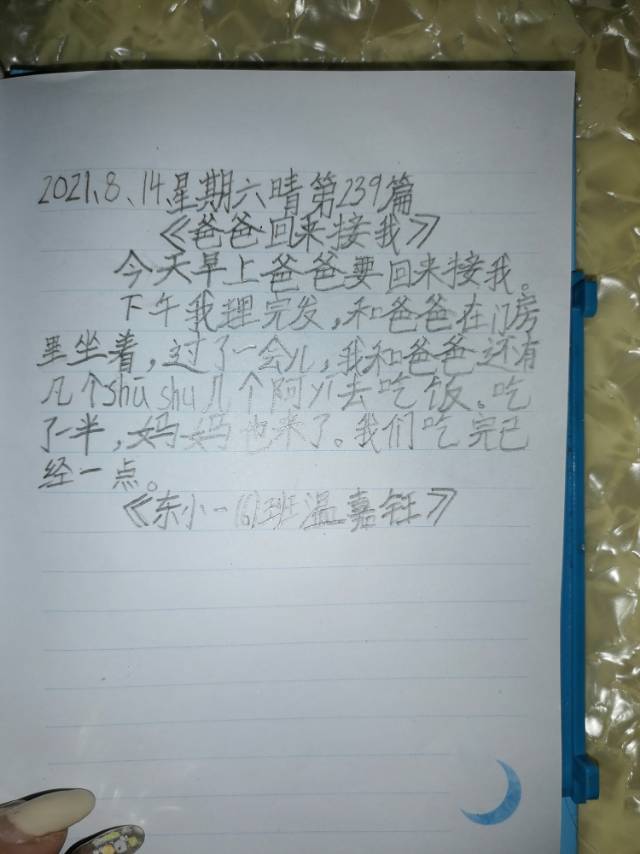 2021、8、14星期六晴第239篇
《爸爸回来接我》
今天早上爸爸要回来接我。
下午我理完发,和爸爸在门房
里坐着,过了一会儿,我和爸爸还有
几个shūshu几个阿yí去吃饭。吃
了一半,妈妈也来了。我们吃完已
经一点。
《东小一(6)班温嘉钰》